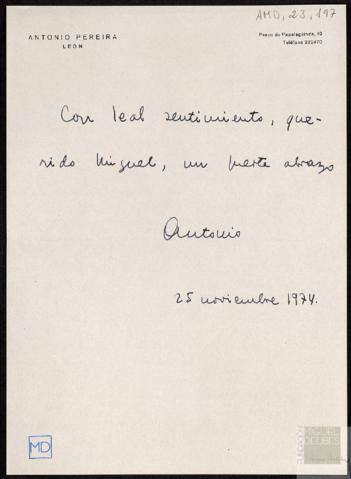 AMD, 23, 197
ANTONIO PEREIRA
LEON
Paseo de Papalaguinda, 19
Teléfono 222470
Con leal sentimiento, que-
rido Miguel, un fuerte abrazo
Antonio
25 noviembre 1974.
MD
FUNDACIÓN
MIGUEL
DELIBES